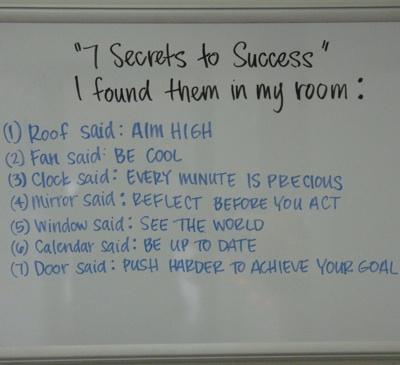 "7 Secrets to Success"
I found them in my room:
(1) Roof said: AIM HIGH
(2) Fan said: BE COOL
(3) Clock said: EVERY MINUTE IS PRECIOUS
(4) Mirror said: REFLECT BEFORE YOU ACT
(5) Window said: SEE THE WORLD
(6) Calendar said: BE UP TO DATE
(7) Door said: PUSH HARDER TO ACHIEVE YOUR GOAL